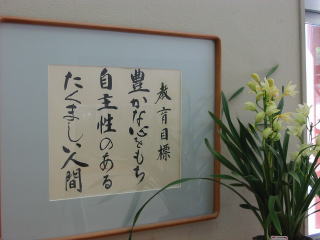 教育目標
豊かな心をもち
自主性のある
たくましい人間